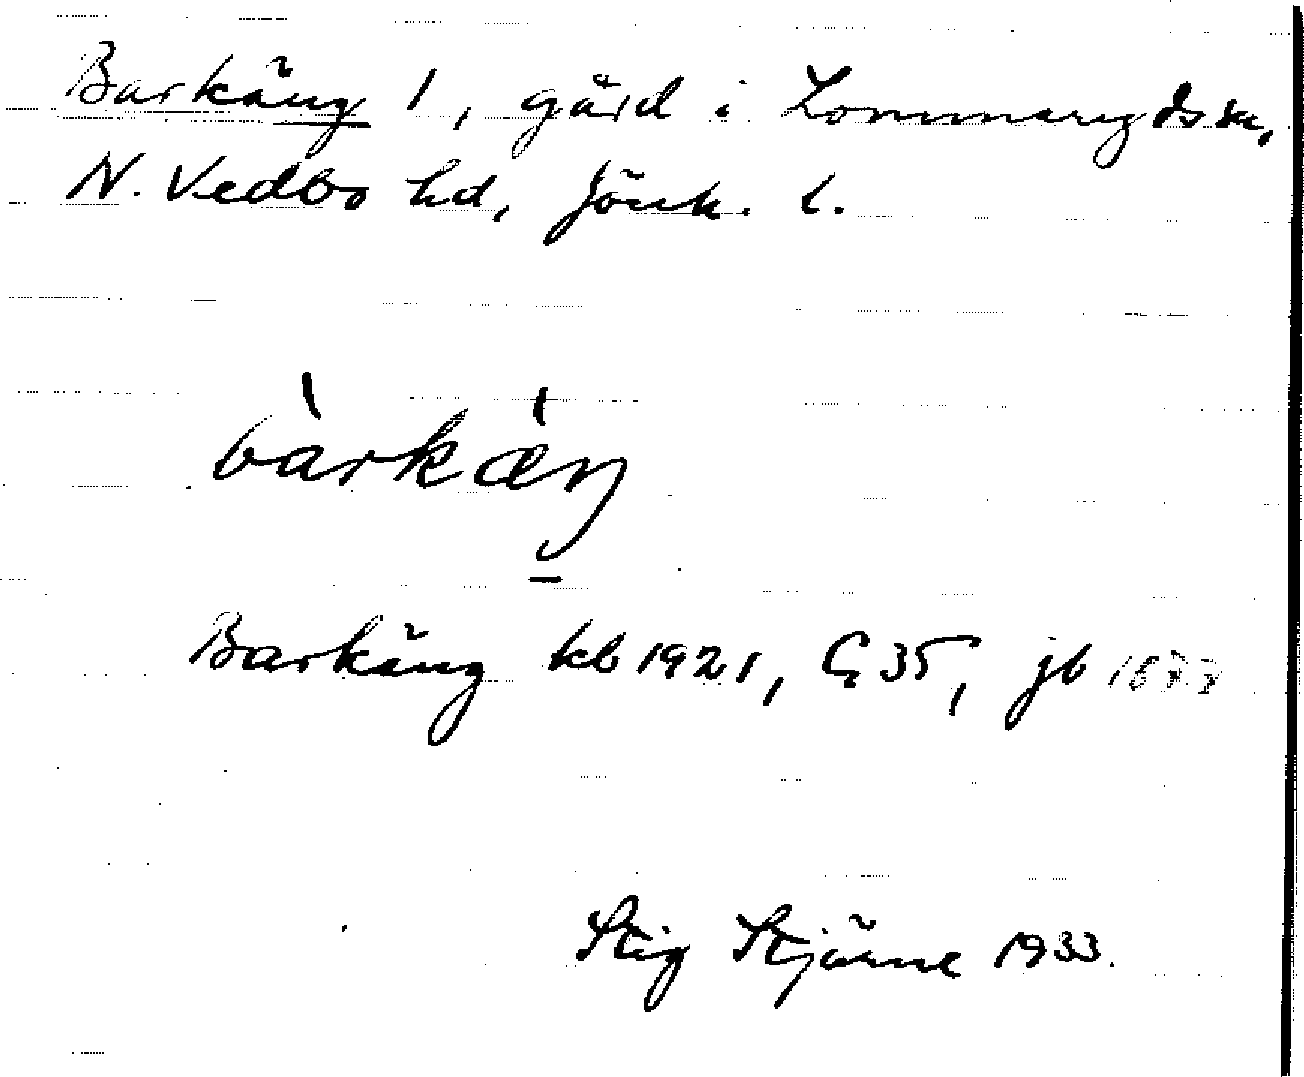 Barkäng 1, gård i Lommaryds sn,
N. Vedbo hd, Jönk. l.
bàrkæ̀ŋ
Barkäng kb 1921, G 35, jb
Stig Stjärne 1933.